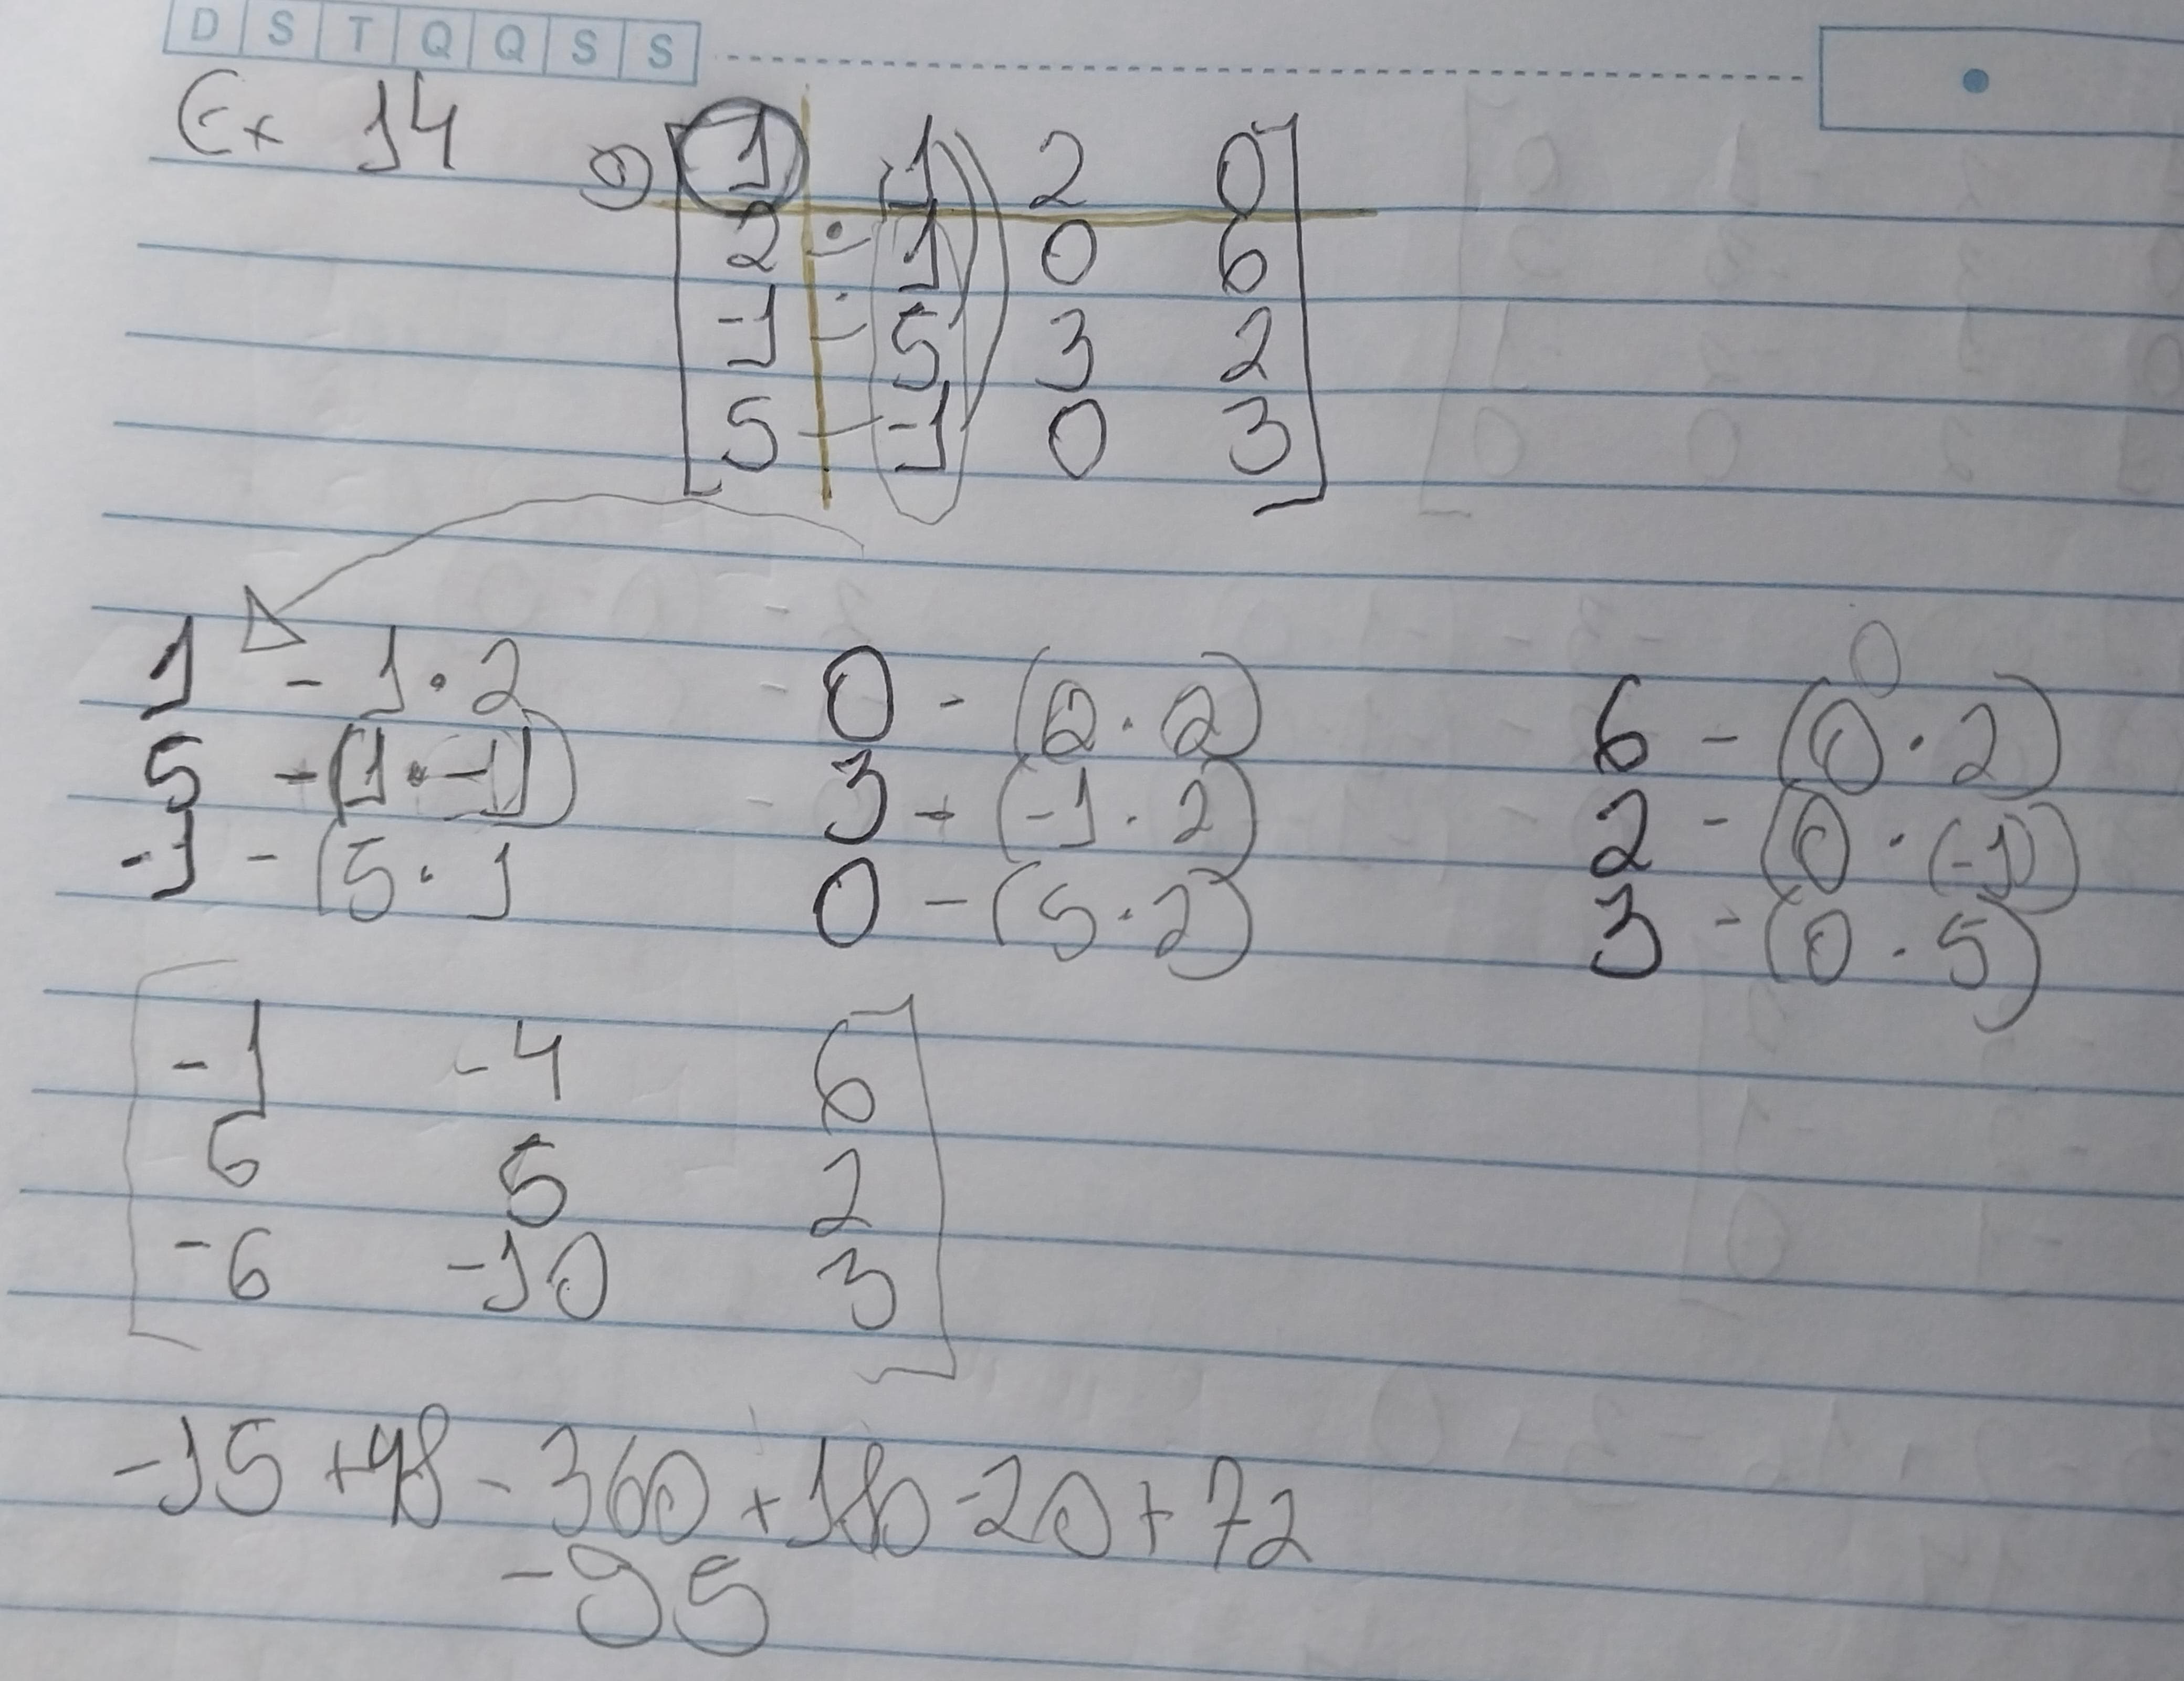 D S T Q Q S S
Ex 14
1 1 2 0
2 1 0 6
-1 5 3 2
5 -1 0 3
1 - 1 · 2 0 - (2 · 2) 6 - (0 · 2)
5 - (1 · -1) 3 - (-1 · 2) 2 - (0 · (-1))
-1 - (5 · 1 0 - (5 · 2) 3 - (0 · 5)
-1 -4 6
6 5 2
-6 -10 3
-15 +48 - 360 + 180 - 20 + 72
-95